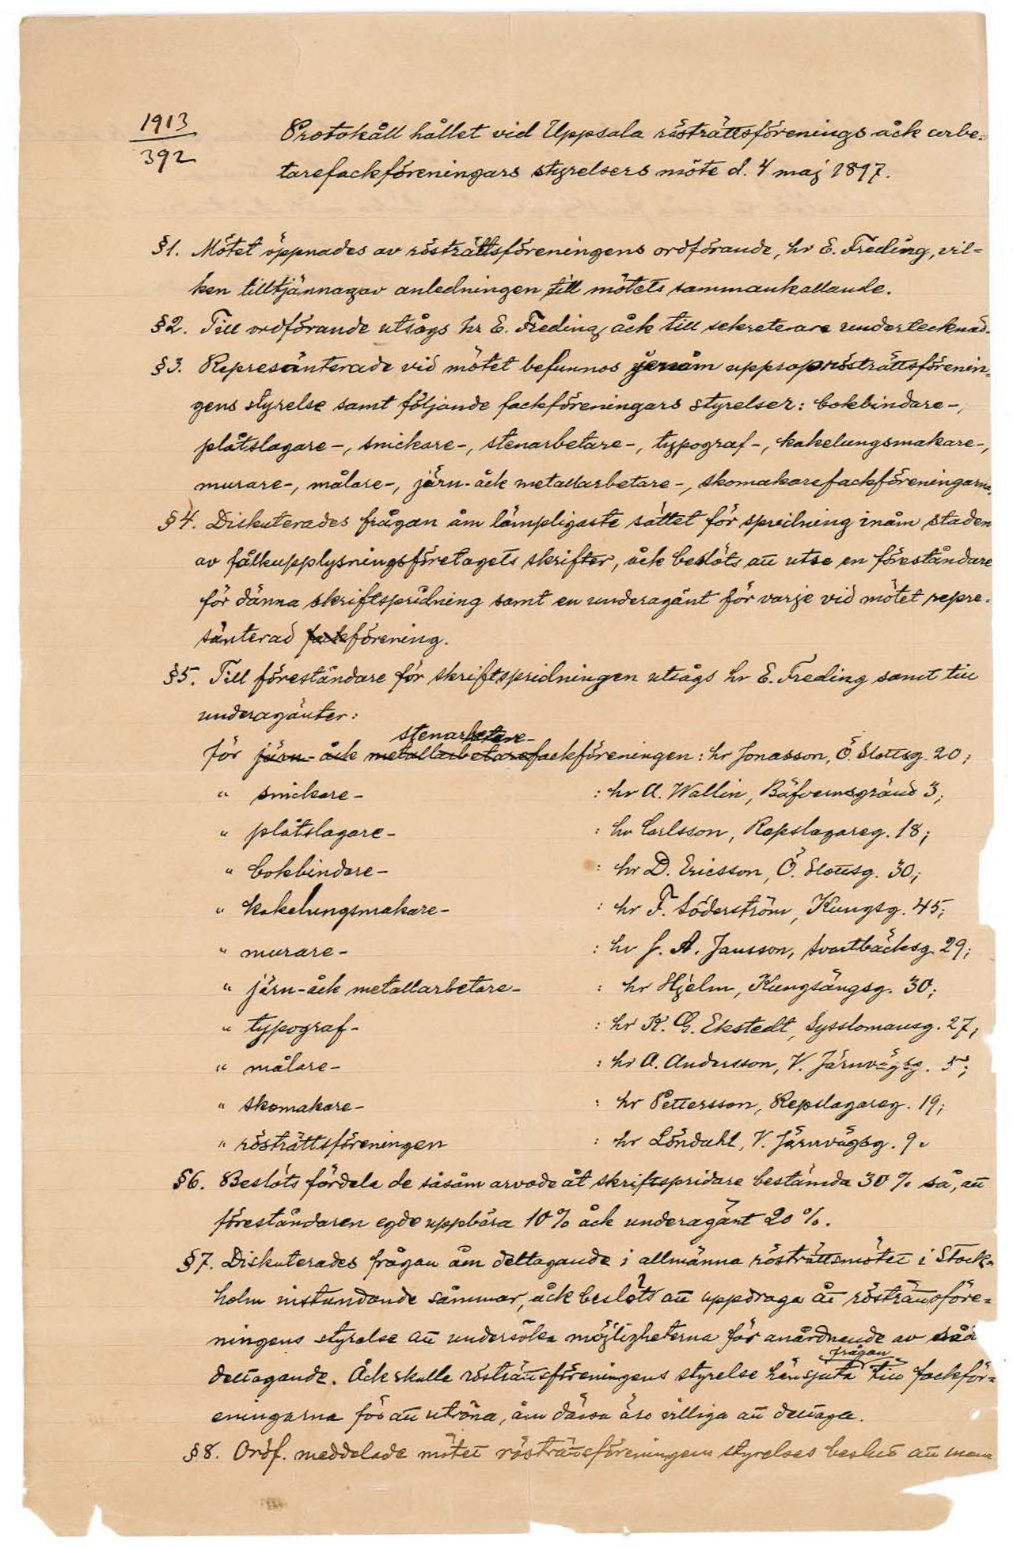 1913
392
Protokåll hållet vid Uppsala rösträttsförenings åck arbe-
tarefackföreningars styrelsers möte d. 4 maj 1897.
§1. Mötet öppnades av rösträttsföreningens ordförande, hr E. Freding, vil-
ken tilltjännagav anledningen till mötets sammankallande.
§2. Till ordförande utsågs hr E. Freding åck till sekreterare undertecknad.
§3. Represänterade vid mötet befunnos rösträttsförenin-
gens styrelse samt följande fackföreningars styrelser: bokbindare-,
plåtslagare-, snickare-, stenarbetare-, typograf-, kakelungsmakare-,
murare-, målare-, järn- åck metallarbetare-, skomakarefackföreningarna.
§4. Diskuterades frågan åm lämpligaste sättet för spridning inåm staden
av fålkupplysningsföretagets skrifter, åck beslöts att utse en föreståndare
för dänna skriftspridning samt en underagänt för varje vid mötet repre-
sänterad fackförening.
§5. Till föreståndare för skriftspridningen utsågs hr E. Freding samt till
underagänter:
stenarbetare-
för järn- åck metallarbetarefackföreningen: hr Jonasson, Ö. Slottsg. 20;
" snickare- : hr A. Wallin, Bäfvernsgränd 3;
" plåtslagare- : hr Carlsson, Repslagareg. 18;
" bokbindare- : hr D. Ericsson, Ö. Slottsg. 30;
" kakelungsmakare- : hr F. Söderström, Kungsg. 45;
" murare- : hr J. A. Jansson, Svartbäcksg. 29;
" järn- åck metallarbetare- : hr Hjelm, Kungsängsg. 30;
" typograf- : hr K. G. Ekstedt, Sysslomansg. 27;
" målare- : hr A. Andersson, V. Järnvägsg. 5;
" skomakare- : hr Pettersson, Repslagareg. 19;
" rösträttsföreningen : hr Löndahl, V. Järnvägsg. 9.
§6. Beslöts fördela de såsåm arvode åt skriftspridare bestämda 30 % så, att
föreståndaren egde uppbära 10 % åck underagänt 20 %.
§7. Diskuterades frågan åm deltagande i allmänna rösträttsmötet i Stock-
holm instundande såmmar, åck beslöts att uppdraga åt rösträttsföre-
ningens styrelse att undersöka möjligheterna för anårdnande av
deltagande. Åck skulle rösträttsföreningens styrelse hänsjuta frågan till fackför-
eningarna för att utröna, åm dässa äro villiga att deltaga.
§8. Ordf. meddelade mötet rösträttsföreningens styrelses beslut att